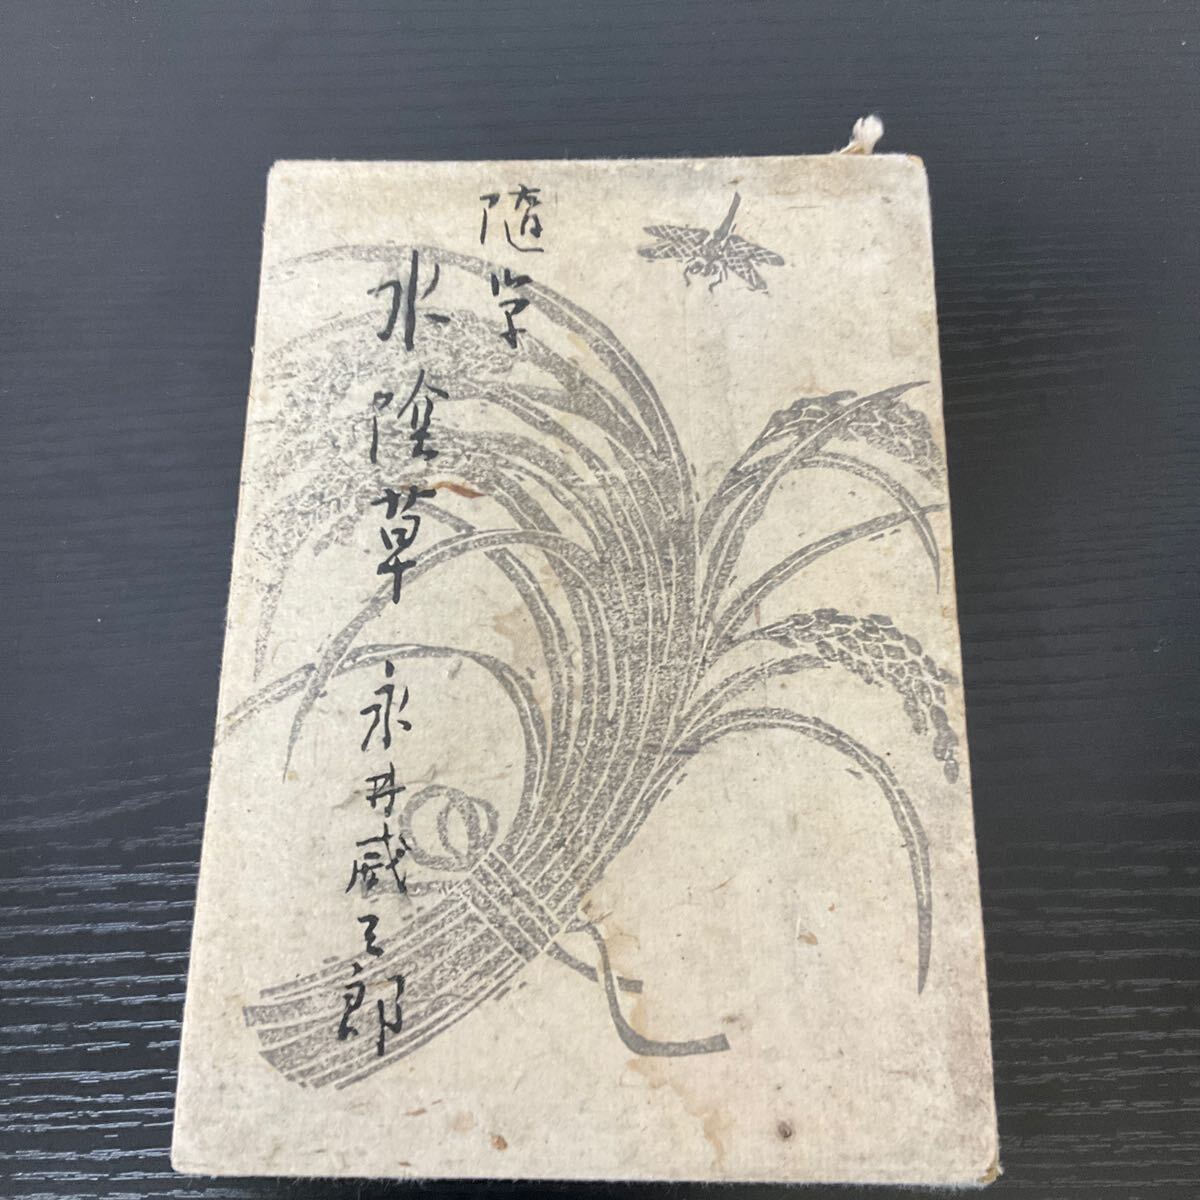 随筆
水陰草 永井威三郎